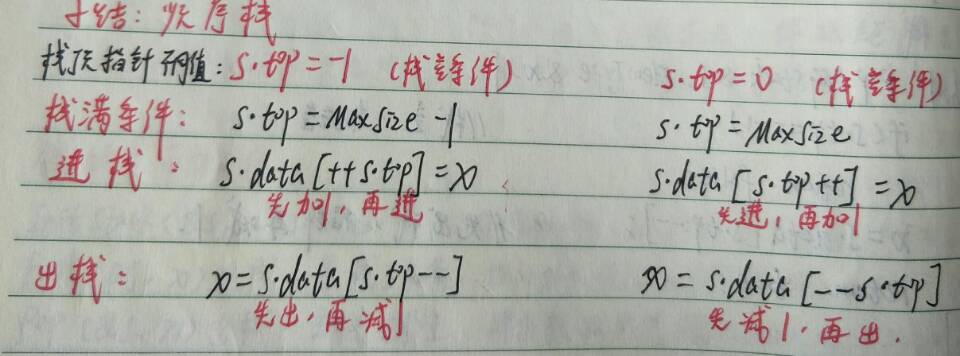 小结：顺序栈
栈顶指针初值：S.top=-1 （栈空条件） S.top=0 （栈空条件）
栈满条件： S.top=MaxSize-1 S.top=MaxSize
进栈： S.data[++S.top]=x S.data[S.top++]=x
先加1，再进 先进，再加1
出栈： x=S.data[S.top--] x=S.data[--S.top]
先出，再减1 先减1，再出.